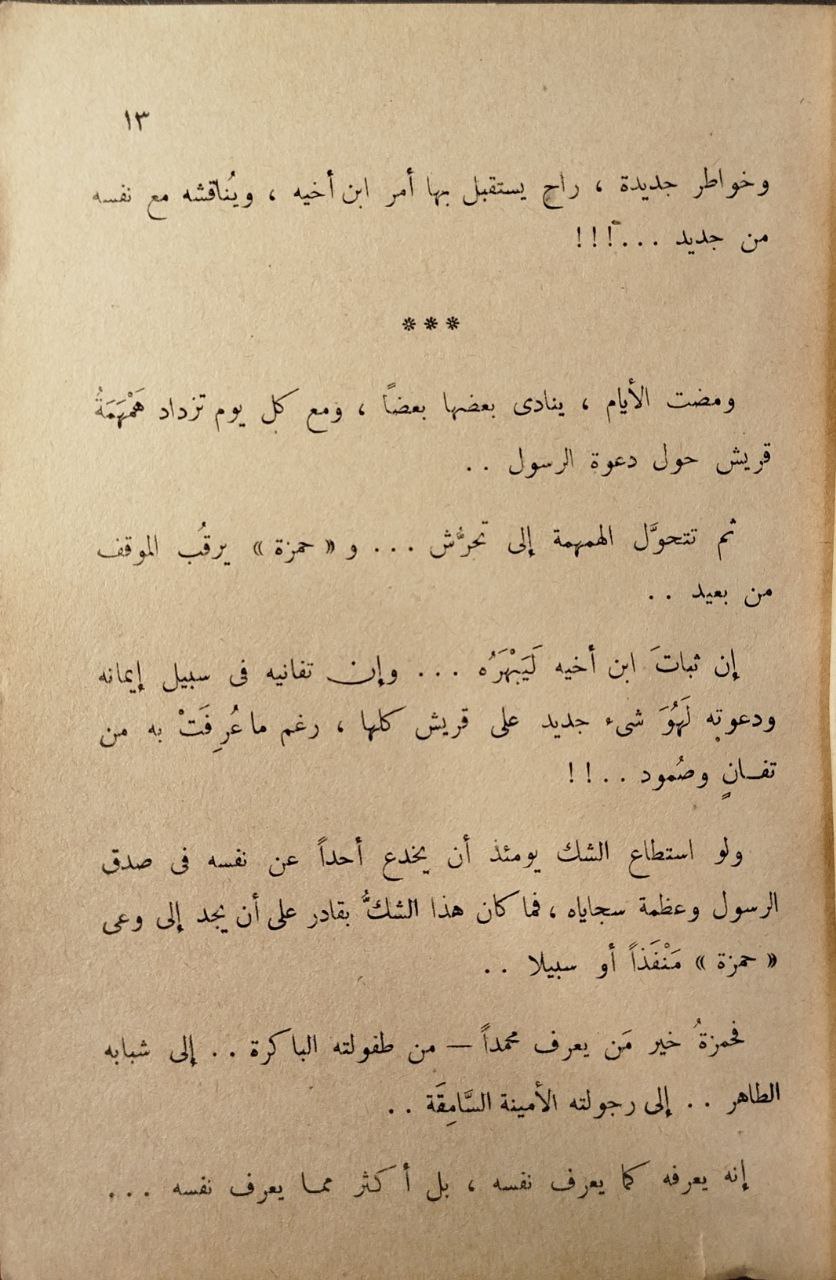 ١٣
وخواطر جديدة ، راح يستقبل بها أمر ابن أخيه ، ويُناقشه مع نفسه
من جديد ...!!!
***
ومضت الأيام ، ينادى بعضها بعضاً ، ومع كل يوم تزداد هَمْهَمَةُ
قريش حول دعوة الرسول ..
ثم تتحوَّل الهمهمة إلى تحرُّش ... و « حمزة » يرقُب الموقف
من بعيد ..
إن ثباتَ ابن أخيه لَيَبْهَرُه ... وإن تفانيه فى سبيل إيمانه
ودعوته لَهُوَ شىء جديد على قريش كلها ، رغم ما عُرِفَتْ به من
تفــانٍ وصُمود ..!!
ولو استطاع الشك يومئذ أن يخدع أحداً عن نفسه فى صدق
الرسول وعظمة سجاياه ، فما كان هذا الشكُّ بقادر على أن يجد إلى وعى
« حمزة » مَنْفَذاً أو سبيلا ..
فحمزةُ خير مَن يعرف محمداً — من طفولته الباكرة .. إلى شبابه
الطاهر .. إلى رجولته الأمينة السَّامِقَة ..
إنه يعرفه كما يعرف نفسه ، بل أكثر مما يعرف نفسه ...